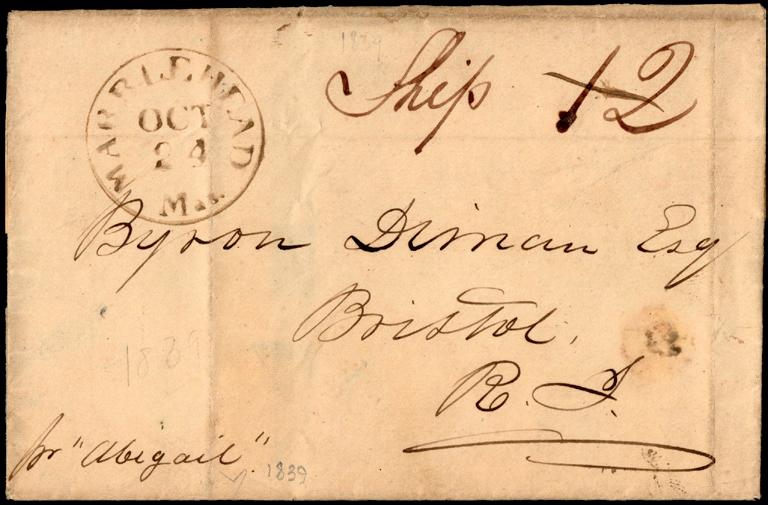 1839
MARBLEHEAD
OCT
24
Ms.
Ship 12
Byron Diman Esq
Bristol.
R. I.
1839
pr "Abigail".
1839